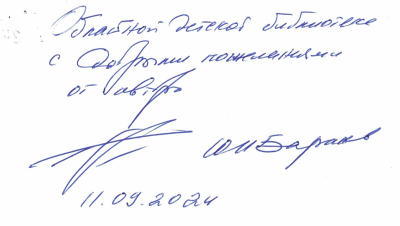 Областной детской библиотеке
с добрыми пожеланиями
от автора
Ю И Баранов
11.09.2024